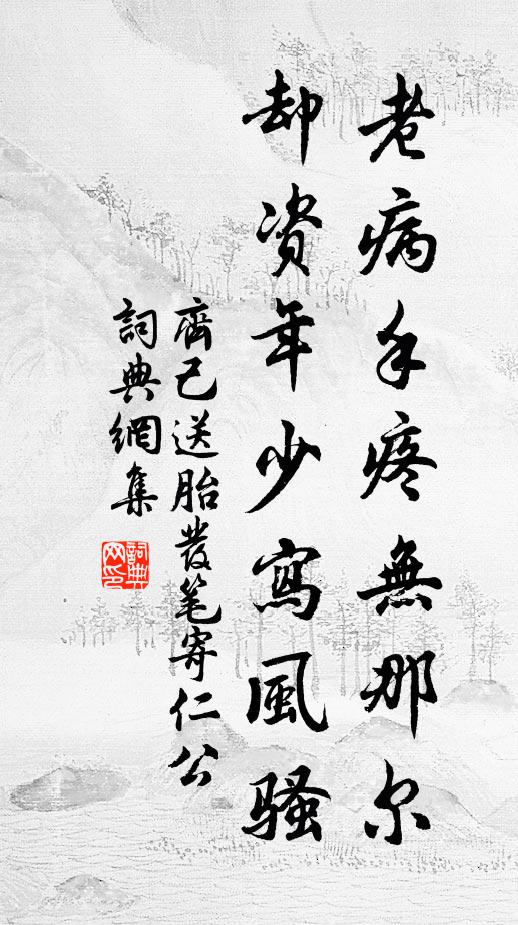 老病手疼無那尔
却资年少寫風骚
齊己送胎发笔寄仁公
詞典網集
詞典网印